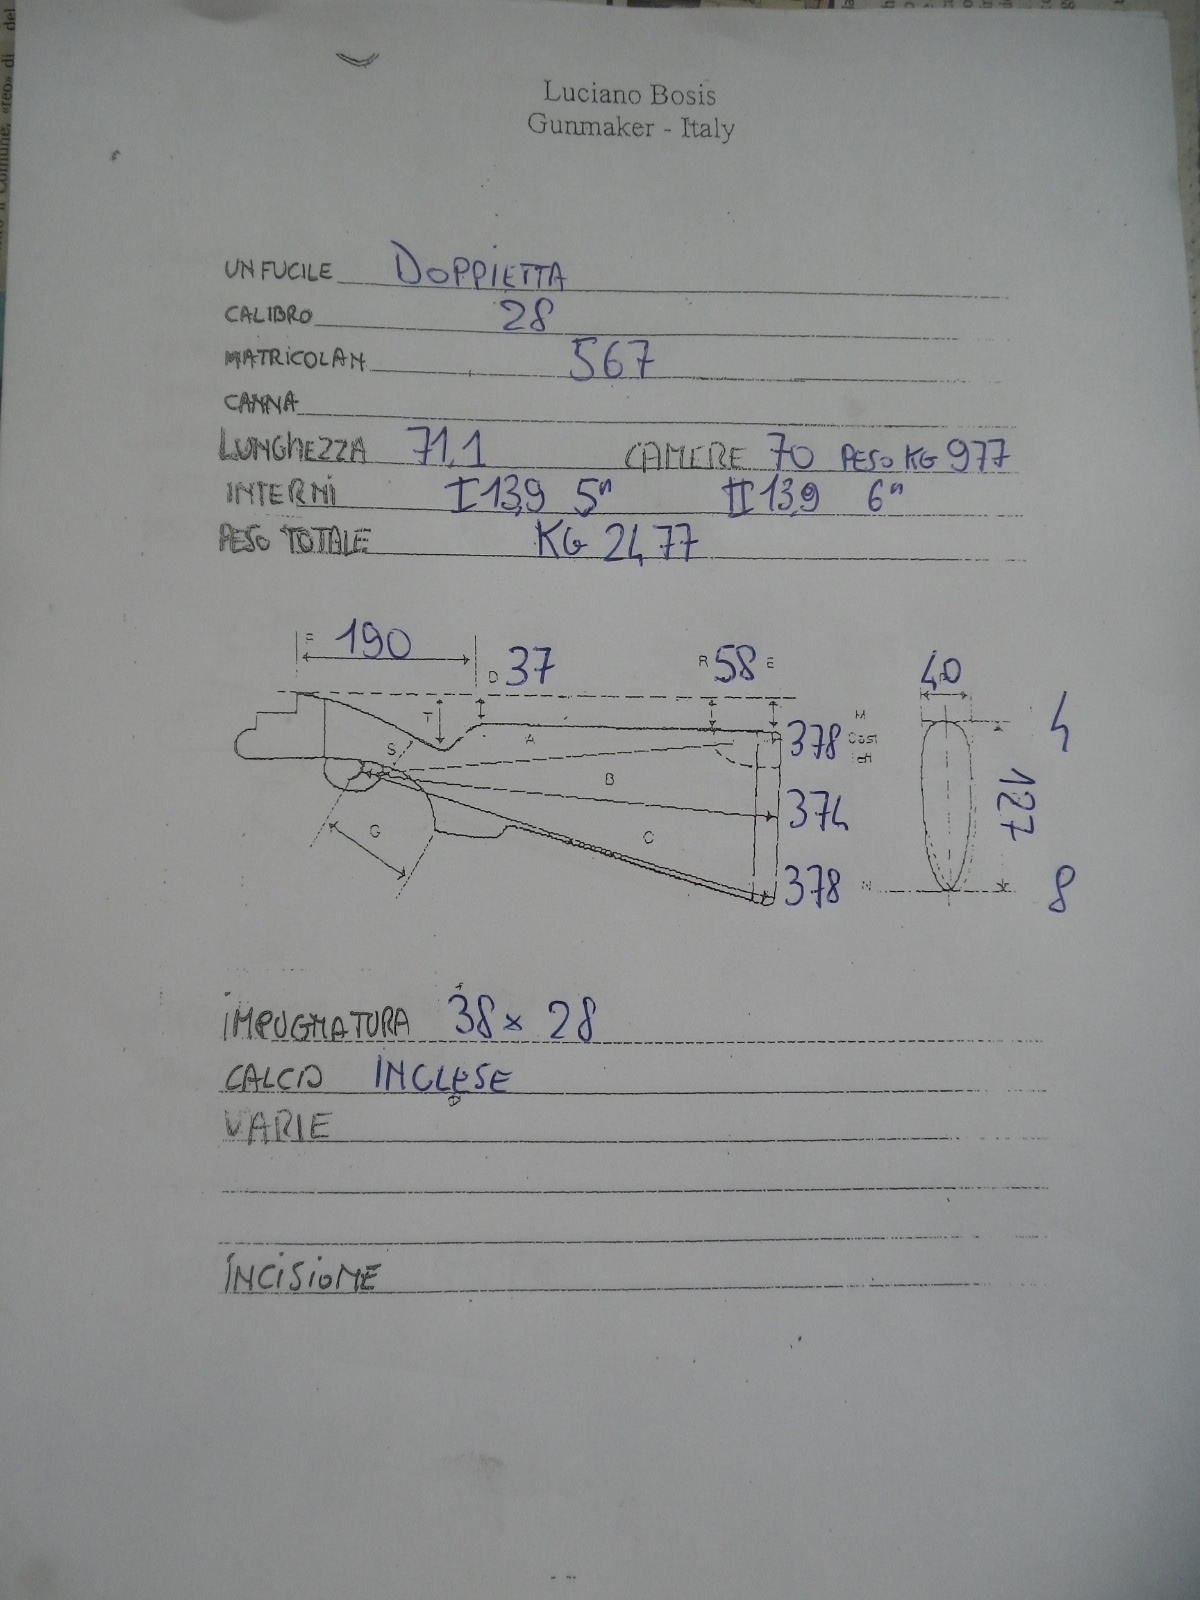 Luciano Bosis
Gunmaker - Italy
UN FUCILE DOPPIETTA
CALIBRO 28
MATRICOLA N 567
CANNA
LUNGHEZZA 71,1 CAMERE 70 PESO KG 977
INTERNI I 13,9 5^ II 13,9 6^
PESO TOTALE KG 2477
F 190
D 37
R 58 E
40
4
T
A
S
378
M
Cast
B
374
127
G
C
378
N
8
IMPUGNATURA 38 x 28
CALCIO INGLESE
VARIE
INCISIONE